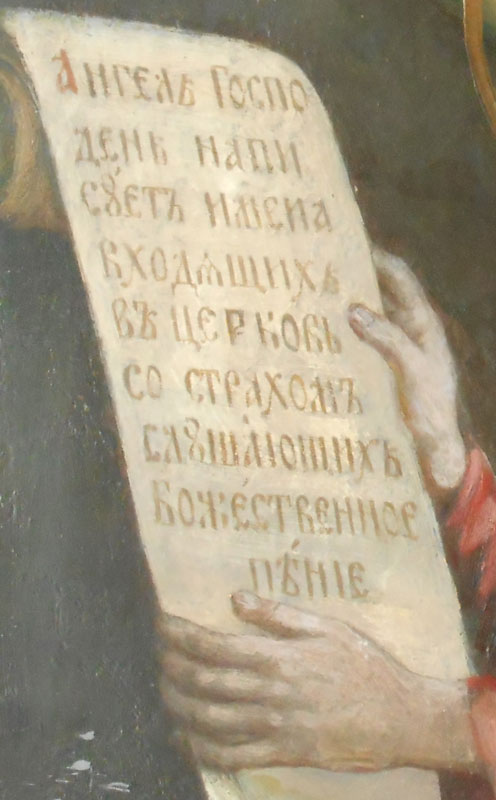 Ангелъ Госпо
день напи
сꙋетъ имена
входѧщихъ
въ церковь
со страхомъ
слꙋшающихъ
Божественное
пѣніе